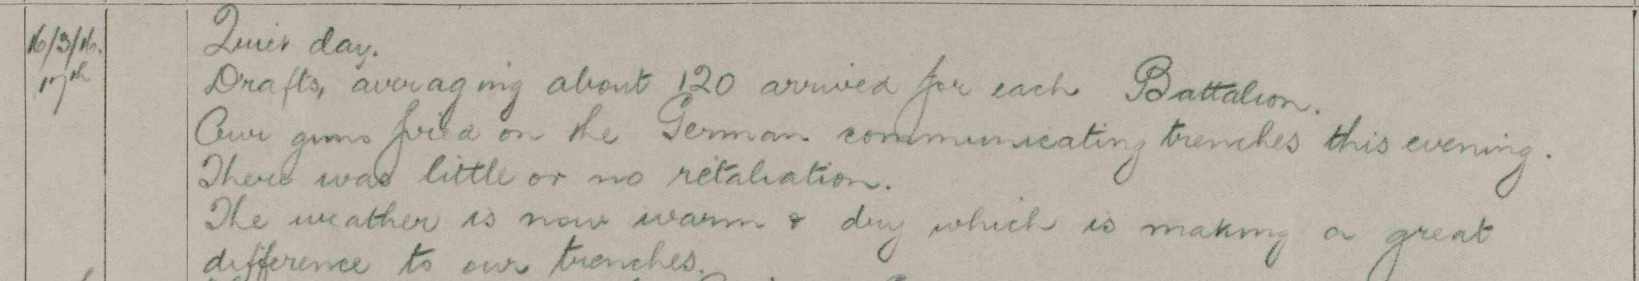 16/3/16. Quiet day.
17th Drafts, averaging about 120 arrived for each Battalion.
Our guns fired on the German communicating trenches this evening.
There was little or no retaliation.
The weather is now warm & dry which is making a great
difference to our trenches.